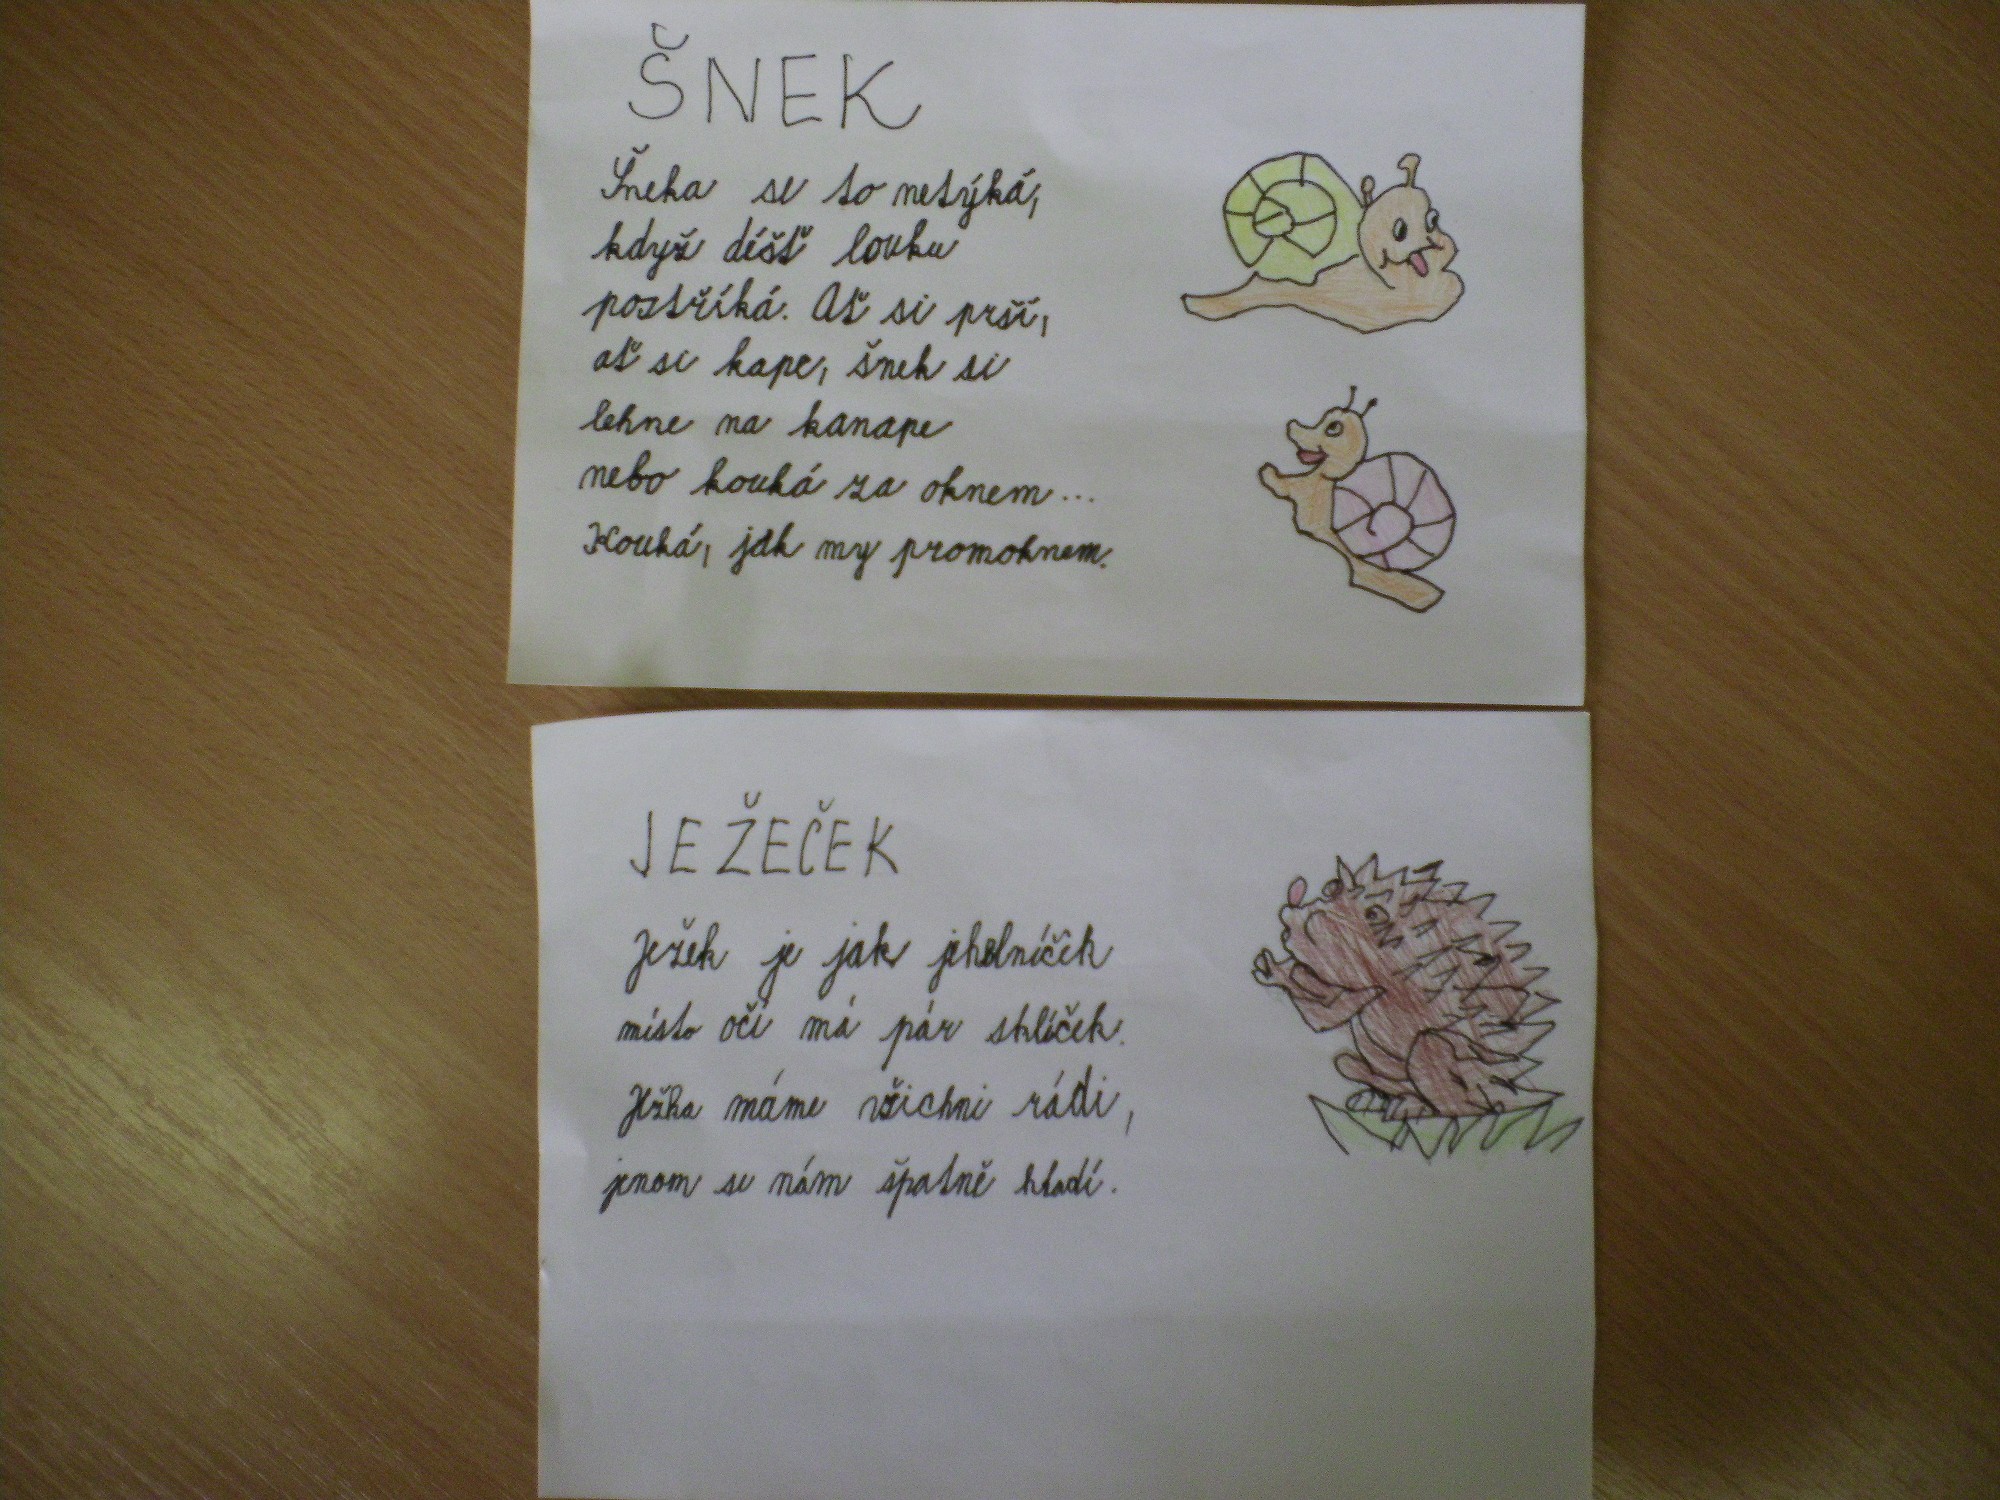 ŠNEK
Šneka se to netýká,
když déšť louku
postříká. Ať si prší,
ať si kape, šnek si
lehne na kanape
nebo kouká za oknem...
Kouká, jak my promoknem.
JEŽEČEK
Ježek je jak jehelníček
místo očí má pár sklíček.
Ježka máme všichni rádi,
jenom se nám špatně hladí.